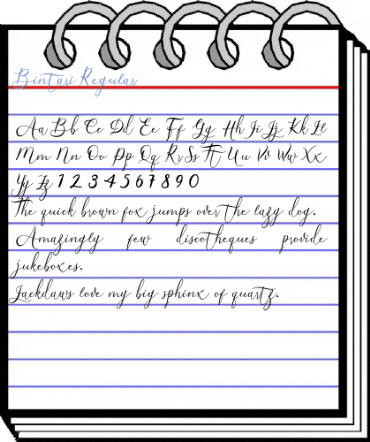 Bintari Regular
Aa Bb Cc Dd Ee Ff Gg Hh Ii Jj Kk Ll
Mm Nn Oo Pp Qq Rr Ss Tt Uu Vv Ww Xx
Yy Zz 1 2 3 4 5 6 7 8 9 0
The quick brown fox jumps over the lazy dog.
Amazingly few discotheques provide
jukeboxes.
Jackdaws love my big sphinx of quartz.